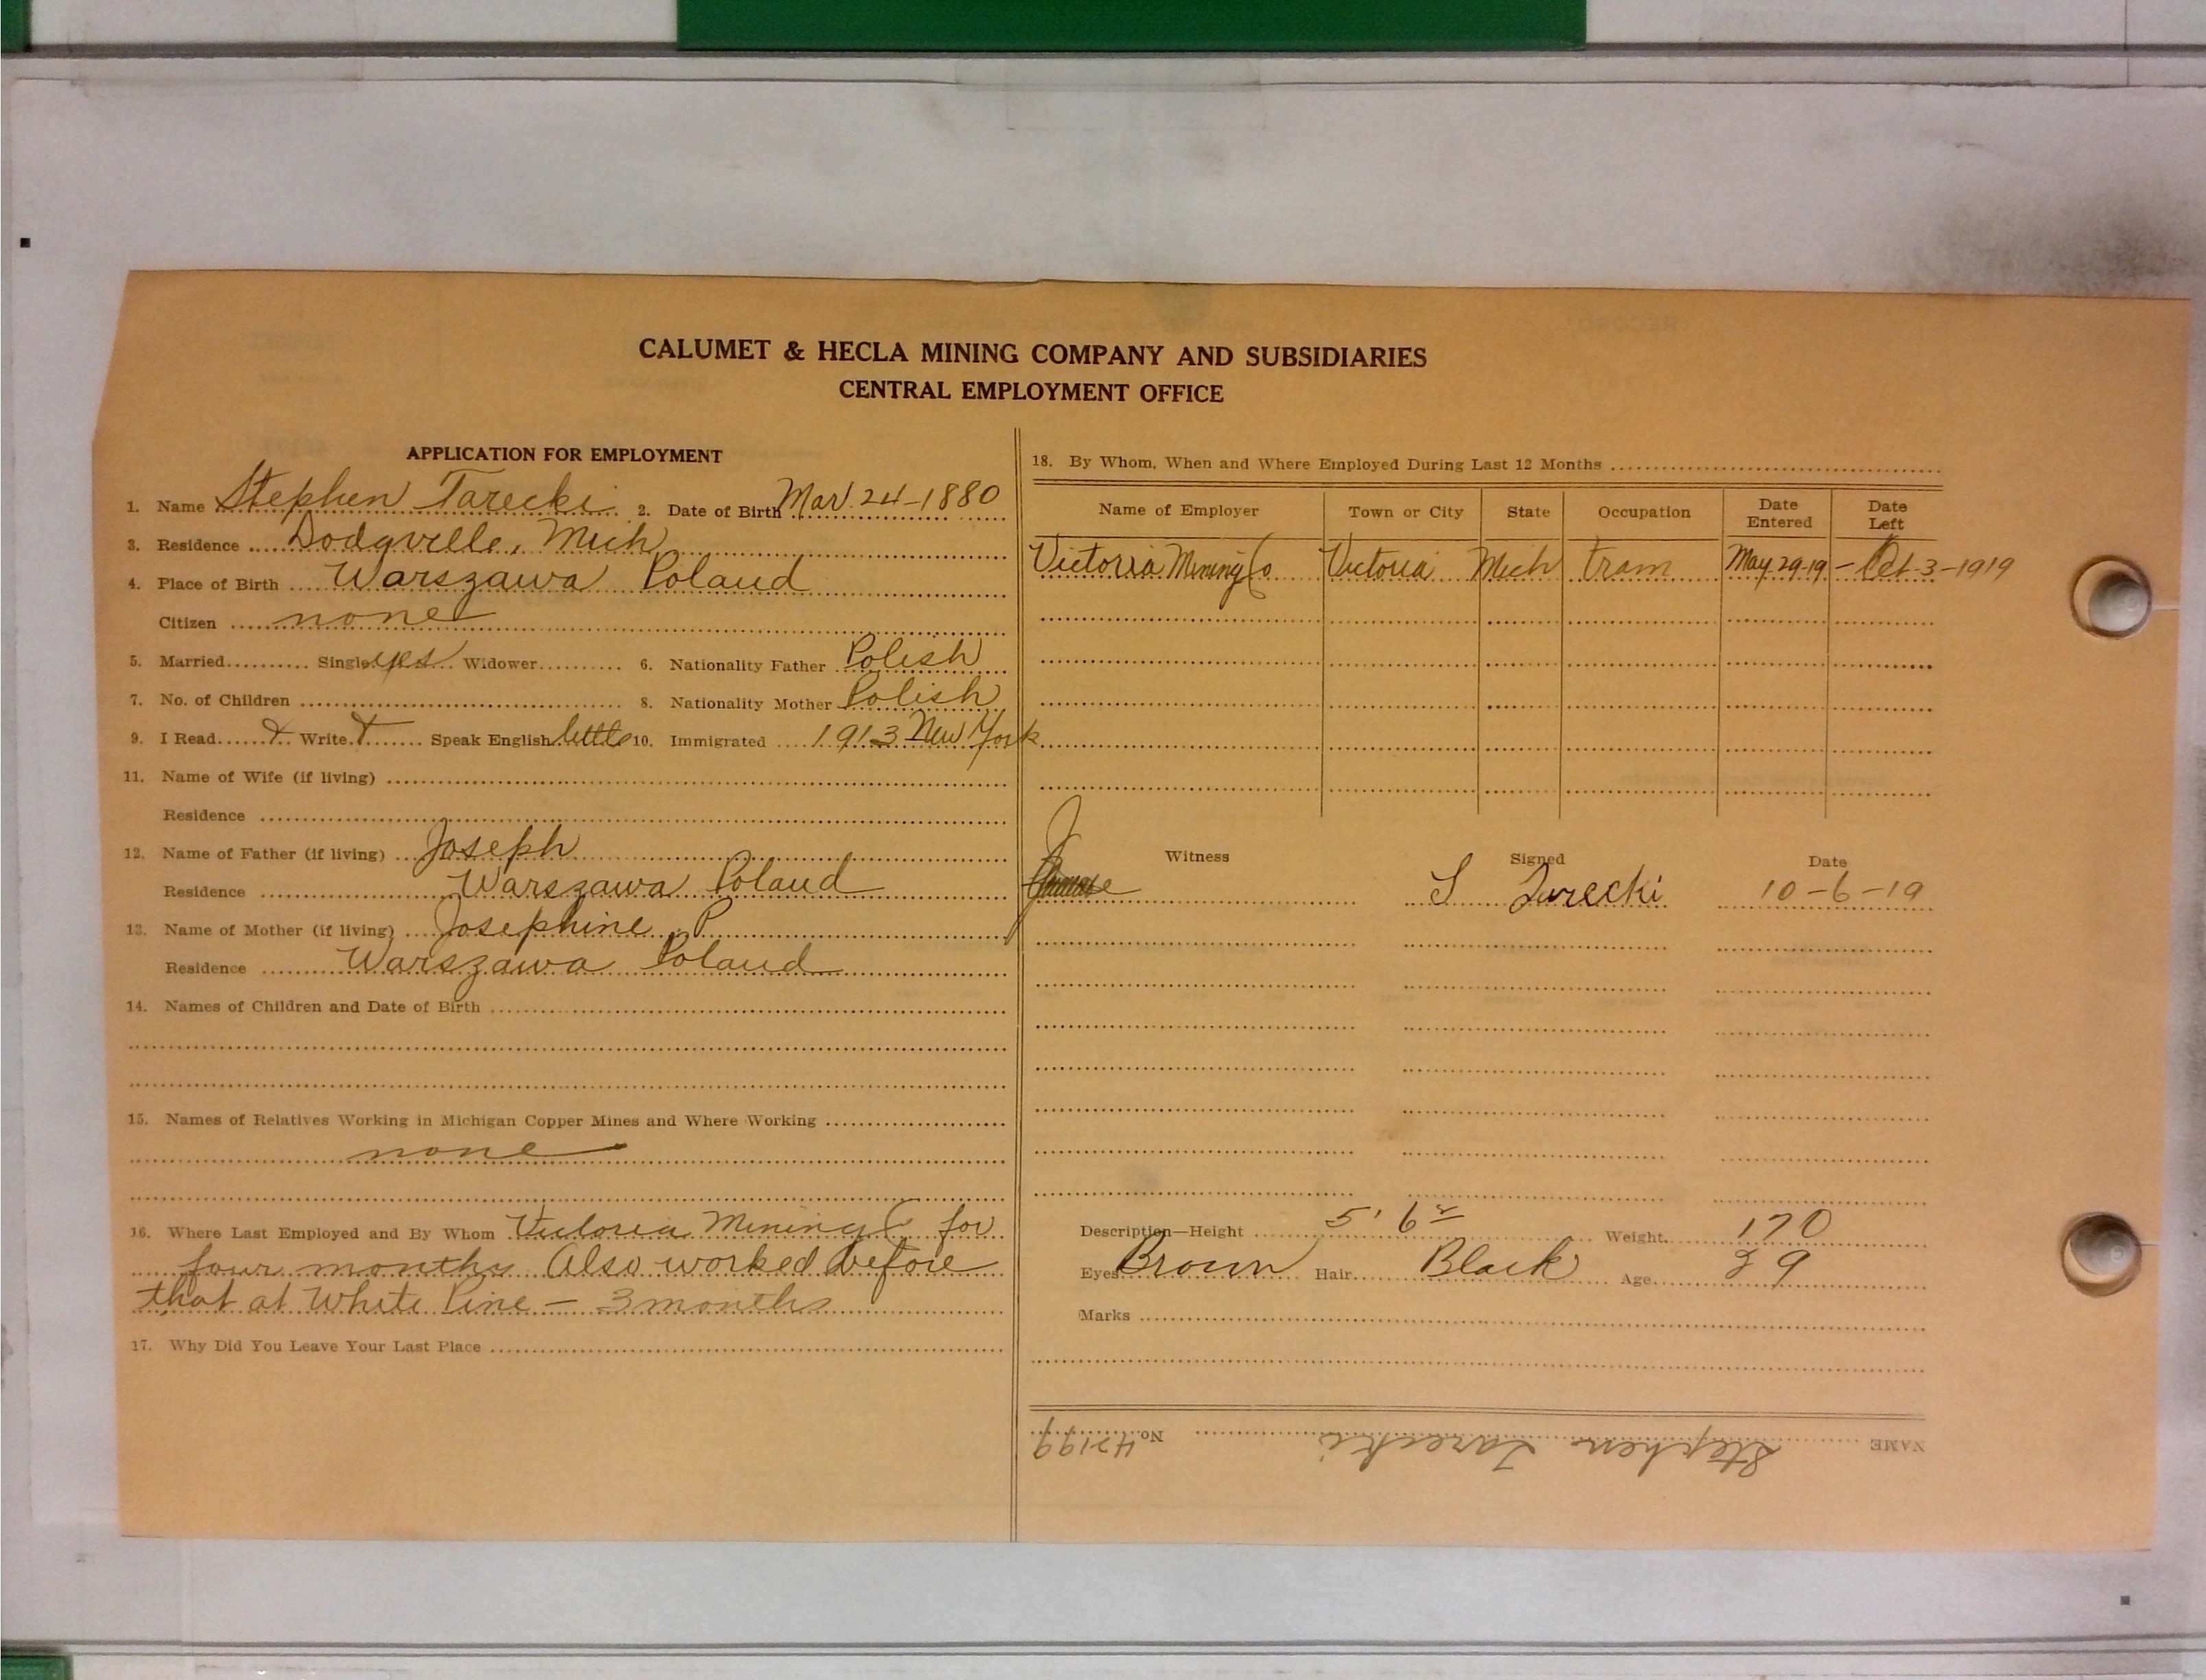 CALUMET & HECLA MINING COMPANY AND SUBSIDIARIES
CENTRAL EMPLOYMENT OFFICE
APPLICATION FOR EMPLOYMENT
1. Name Stephen Tarecki 2. Date of Birth Mar. 24-1880
3. Residence Dodgville, Mich
4. Place of Birth Warszawa Poland
Citizen none
5. Married Single yes Widower 6. Nationality Father Polish
7. No. of Children 8. Nationality Mother Polish
9. I Read Write Speak English little 10. Immigrated 1913 New York
11. Name of Wife (if living)
Residence
12. Name of Father (if living) Joseph
Residence Warszawa Poland
13. Name of Mother (if living) Josephine P
Residence Warszawa Poland
14. Names of Children and Date of Birth
15. Names of Relatives Working in Michigan Copper Mines and Where Working
none
16. Where Last Employed and By Whom Victoria Mining C for
four months Also worked before
that at White Pine - 3 months
17. Why Did You Leave Your Last Place
18. By Whom, When and Where Employed During Last 12 Months
Name of Employer Town or City State Occupation Date Entered Date Left
Victoria Mining Co Victoria Mich tram May 29-19 - Oct-3-1919
Witness Signed Date
S Turecki 10-6-19
Description—Height 5' 6 Weight 170
Eyes Brown Hair Black Age 29
Marks
NAME Stephen Tarecki No. 42199